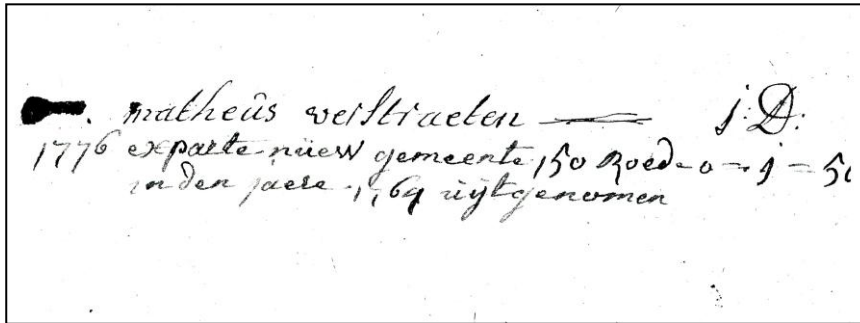 matheûs verstraeten — j: D:
1776 exparte nüew gemeente 150 Roed - 0 - j - 50
in den jaere 1769 uijtgenomen